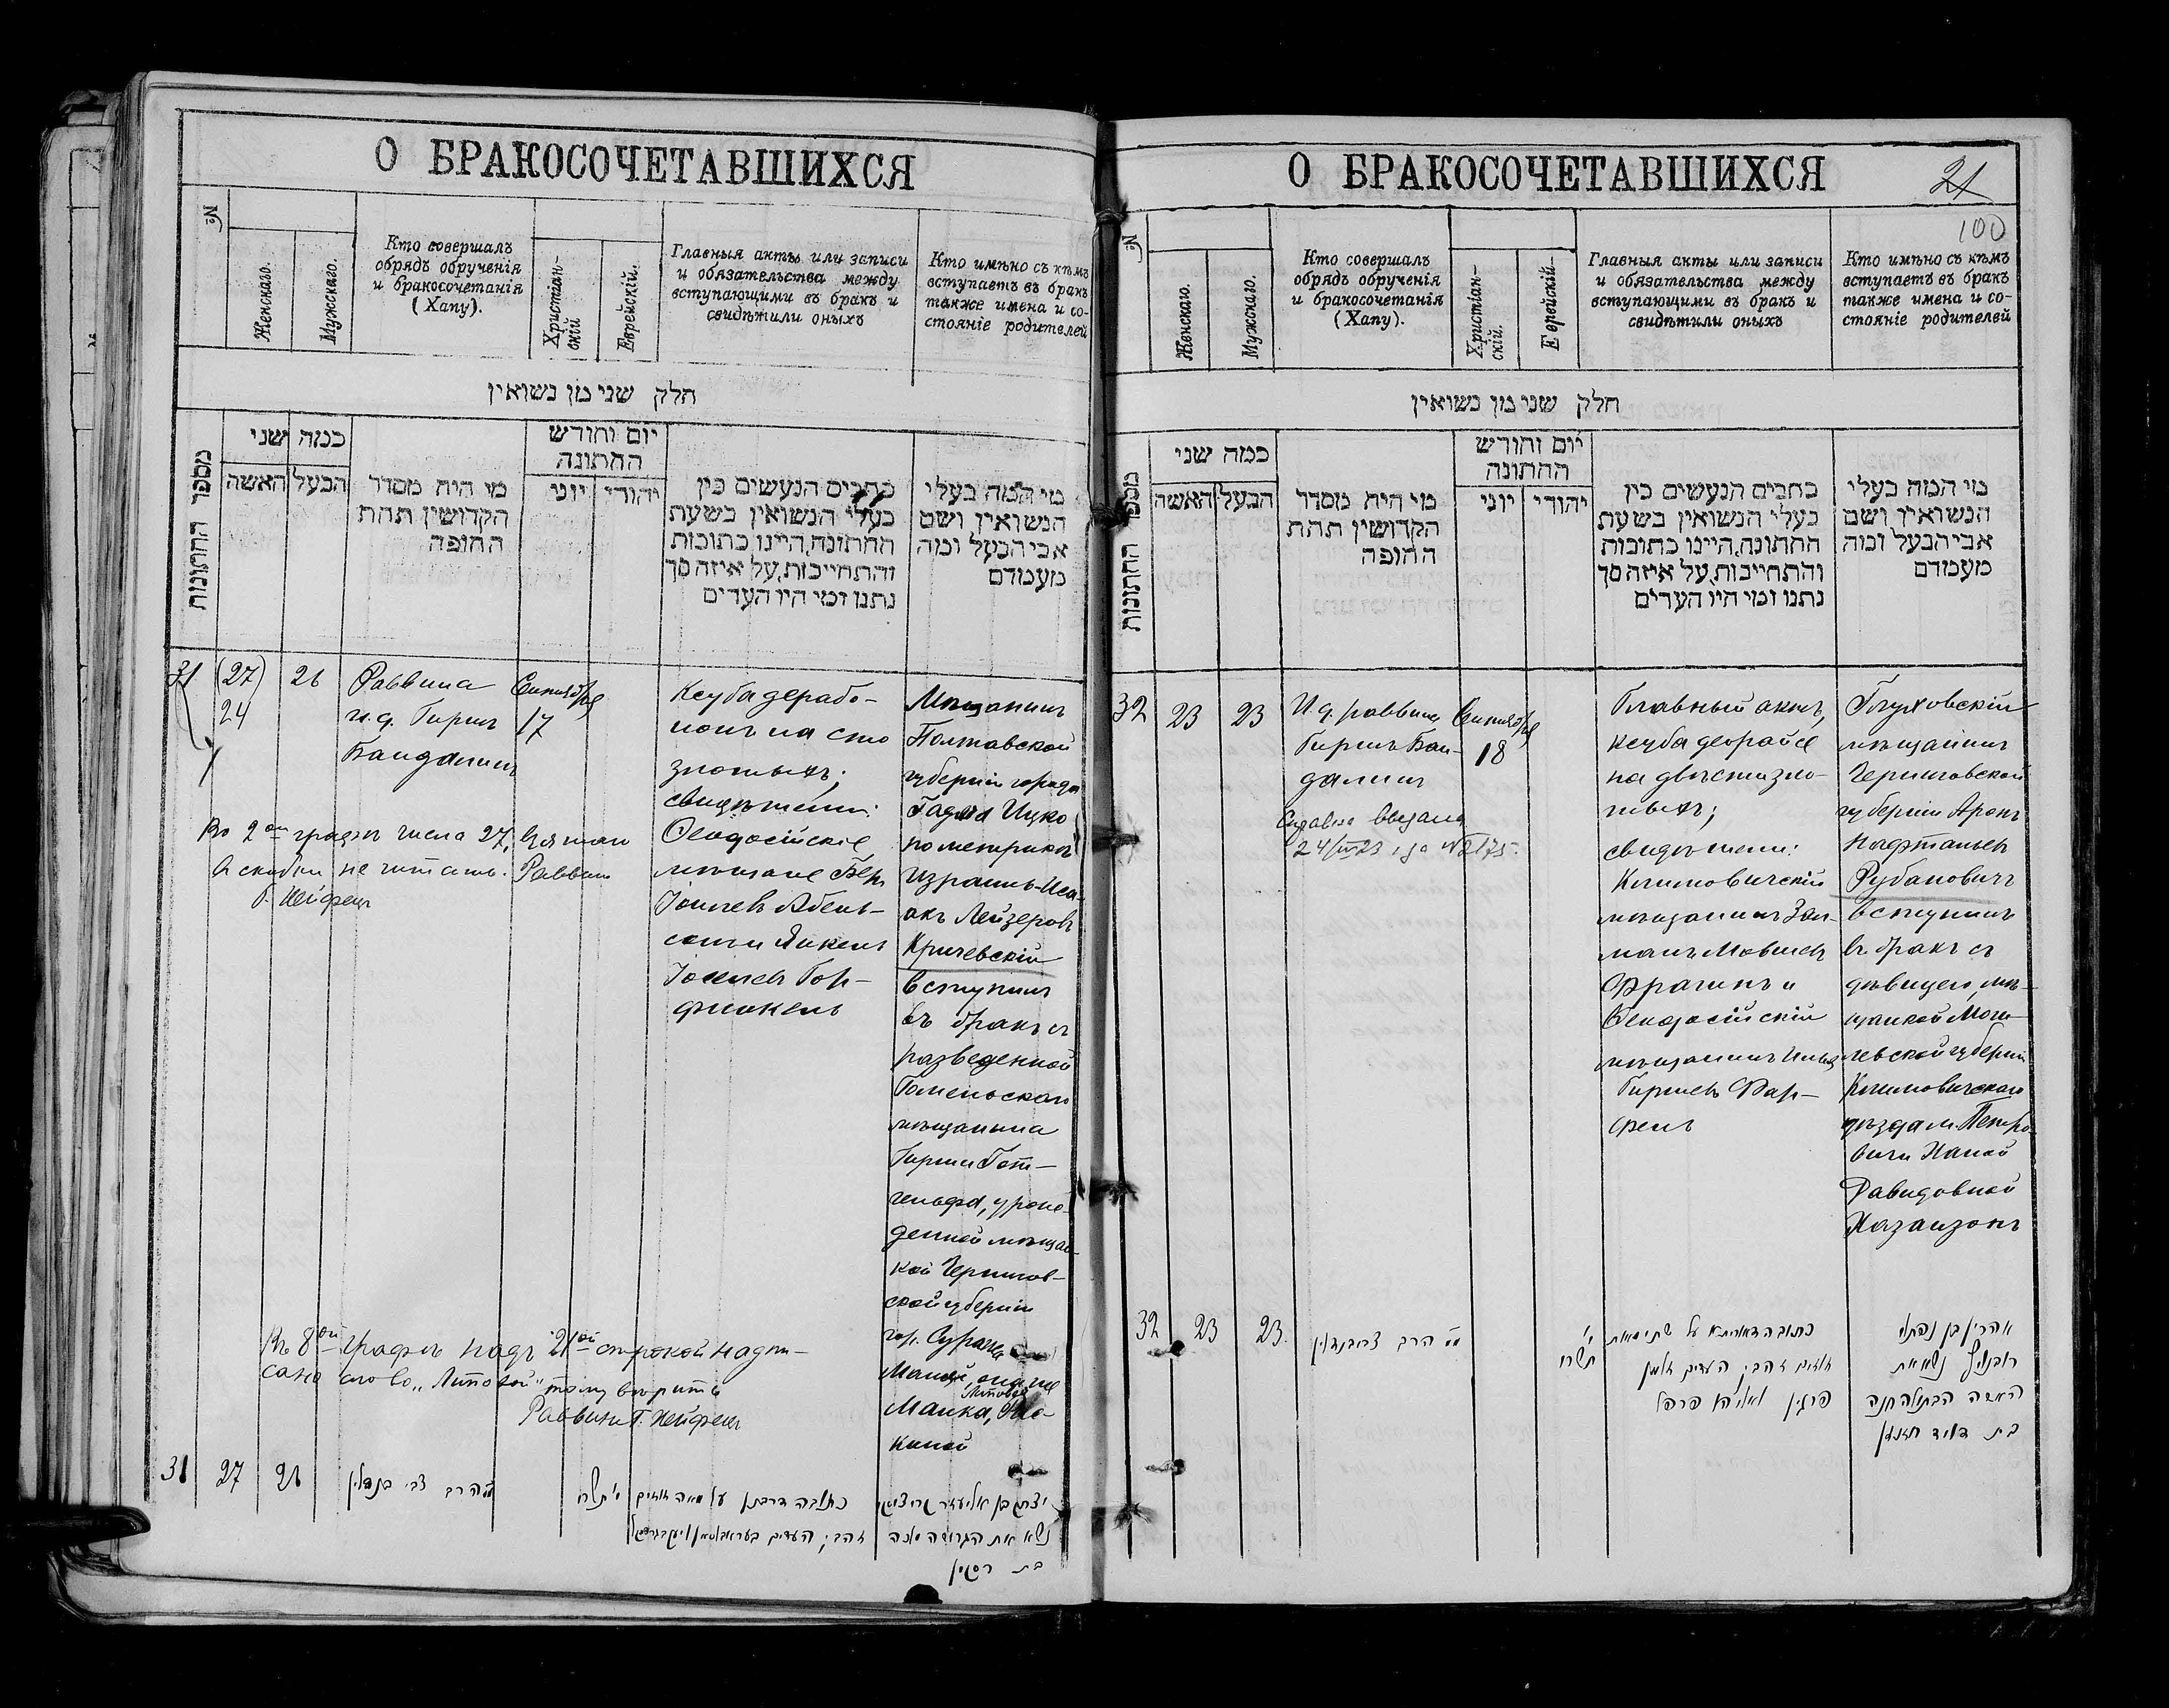 О БРАКОСОЧЕТАВШИХСЯ
№
Женскаго.
Мужскаго.
Кто совершалъ
обрядъ обрученія
и бракосочетанія
(Хапу).
Христіан-
скій
Еврейскій.
Главныя акты или записи
и обязательства между
вступающими въ бракъ и
свидѣтили оныхъ
Кто имѣно съ кѣмъ
вступаетъ въ бракъ
также имена и со-
стояніе родителей
חלק שני מן נשואין
מספר החתונות
כמה שני
האשה
הבעל
מי היה מסדר
הקדושין תחת
החופה
יום וחודש
החתונה
יוני
יהודי
כתבים הנעשים בין
בעלי הנשואין בשעת
החתונה, היינו כתובות
והתחייבות, על איזה סך
נתנו ומי היו העדים
מי המה בעלי
הנשואין ושם
אבי הבעל ומה
מעמדם
31
(27)
24
26
Раввина
и.д. Гиршъ
Бандалинъ
Сентября
17
Ксуба дерабо-
нонъ на сто
злотыхъ;
свидѣтели:
Ѳеодосійскіе
мѣщане Беръ
Іоселевъ Абель-
сонъ и Янкель
Іоселевъ Гор-
финкель
Мѣщанинъ
Полтавской
губерніи города
Гадяча Ицко
(по метрикѣ
Израиль-Иса-
акъ Лейзеровъ
Кричевскій
вступилъ
въ бракъ съ
разведенной
Гомельскаго
мѣщанина
Гирши Гот-
гельфа, урож-
денной мѣщан-
кой Чернигов-
ской губерніи
гор. Суража
Маней, она же
Литовой
Малка,
киной
Во 2ой графѣ числа 27,
а скобки не читать. Раввинъ
Г. Хейфецъ
Въ 8ой графѣ надъ 21ой строкой надпи-
сано слово „Литовой" тому вѣрить
Раввинъ Г. Хейфецъ
31
27
26
הרב צבי בנדלין
כתובה דרבנן על מאה זהובים
נשא את הגרושה מלכה
О БРАКОСОЧЕТАВШИХСЯ
21
100
№
Женскаго.
Мужскаго.
Кто совершалъ
обрядъ обрученія
и бракосочетанія
(Хапу).
Христіан-
скій.
Еврейскій
Главныя акты или записи
и обязательства между
вступающими въ бракъ и
свидѣтили оныхъ
Кто имѣно съ кѣмъ
вступаетъ въ бракъ
также имена и со-
стояніе родителей
חלק שני מן נשואין
מספר החתונות
כמה שני
האשה
הבעל
מי היה מסדר
הקדושין תחת
החופה
יום וחודש
החתונה
יוני
יהודי
כתבים הנעשים בין
בעלי הנשואין בשעת
החתונה, היינו כתובות
והתחייבות, על איזה סך
נתנו ומי היו העדים
מי המה בעלי
הנשואין ושם
אבי הבעל ומה
מעמדם
32
23
23
И.д. раввина
Гиршъ Бан-
далинъ
Справка выдана
24/III 23 г за № 2175.
Сентября
18
Главный актъ,
ксуба деорайсе
на двѣсти зло-
тыхъ;
свидѣтели:
Климовичскій
мѣщанинъ Зал-
манъ Мовшевъ
Фрагинъ и
Ѳеодосійскій
мѣщанинъ Илья
Гиршевъ Фар-
фель
Глуховскій
мѣщанинъ
Черниговской
губерніи Аронъ
Нафтальевъ
Рубановичъ
вступилъ
въ бракъ съ
дѣвицею, мѣ-
щанкой Моги-
левской губерніи
Климовичскаго
уѣзда м. Петро-
вичи Ханой
Давидовной
Хазанзонъ
32
23
23.
י'
תשרי
כתובה דאורייתא על שתי מאות
אהרן בן נפתלי
נשא את
האשה הבתולה חנה
בת דוד חזנזון